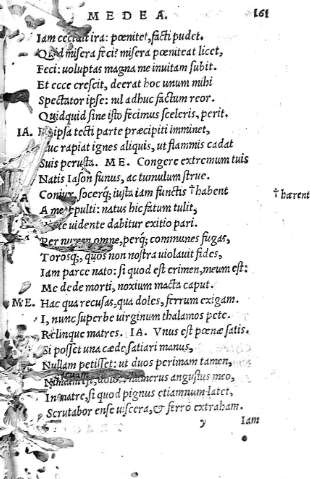 MEDEA. 161
Iam cecidit ira: pœnitet, facti pudet.
Quid misera feci? misera pœniteat licet,
Feci: uoluptas magna me inuitam subit.
Et ecce crescit, deerat hoc unum mihi
Spectator ipse: nil adhuc factum reor.
Quidquid sine isto fecimus sceleris, perit.
IA. ipsa tecti parte præcipiti imminet,
Huc rapiat ignes aliquis, ut flammis cadat
Suis perusta. ME. Congere extremum tuis
Natis Iason funus, ac tumulum strue.
Coniux, socerq; iusta iam functis † habent † hærent
A me sepulti: natus hic fatum tulit,
te uidente dabitur exitio pari.
Per numen omne, perq; communes fugas,
Torosq, quos non nostra uiolauit fides,
Iam parce nato: si quod est crimen, meum est:
Me dede morti, noxium macta caput.
ME. Hac qua recusas, qua doles, ferrum exigam.
I, nunc superbe uirginum thalamos pete.
Relinque matres. IA. Vnus est pœnæ satis.
Si posset una cæde satiari manus,
Nullam petisset: ut duos perimam tamen,
Nimium est, dolori numerus angustus meo,
In matre, si quod pignus etiamnum latet,
Scrutabor ense uiscera, & ferro extraham.
y Iam